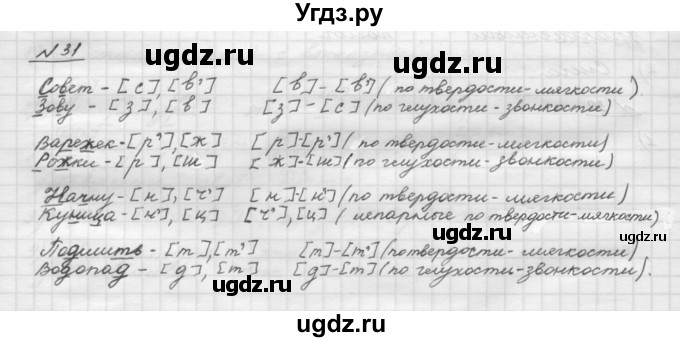 Угдз.ру
N 31
Совет - [с], [в'] [в] - [в'] (по твердости-мягкости)
Зову - [з], [в] [з] - [с] (по глухости-звонкости)
Варежек - [р'], [ж] [р]-[р'] (по твердости-мягкости)
Рожки - [р], [ш] [ж]-[ш] (по глухости-звонкости)
Начну - [н], [ч'] [н]-[н'] (по твердости-мягкости)
Куница - [н'], [ц] [ч'], [ц] (непарные по твердости-мягкости)
Подпилить - [т], [т'] [т]-[т'] (по твердости-мягкости)
Водопад - [д], [т] [д]-[т] (по глухости-звонкости).
ugdz.ru
ugdz.ru
ugdz.ru
ugdz.ru
ugdz.ru
ugdz.ru
ugdz.ru
ugdz.ru